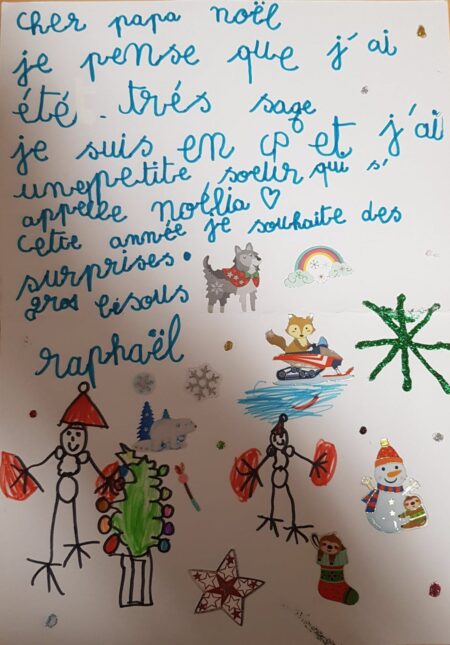 cher papa noël
je pense que j'ai
été très sage
je suis en cp et j'ai
une petite soeur qui s'
appelle noëlia ♡
cette année je souhaite des
surprises.
gros bisous
raphaël